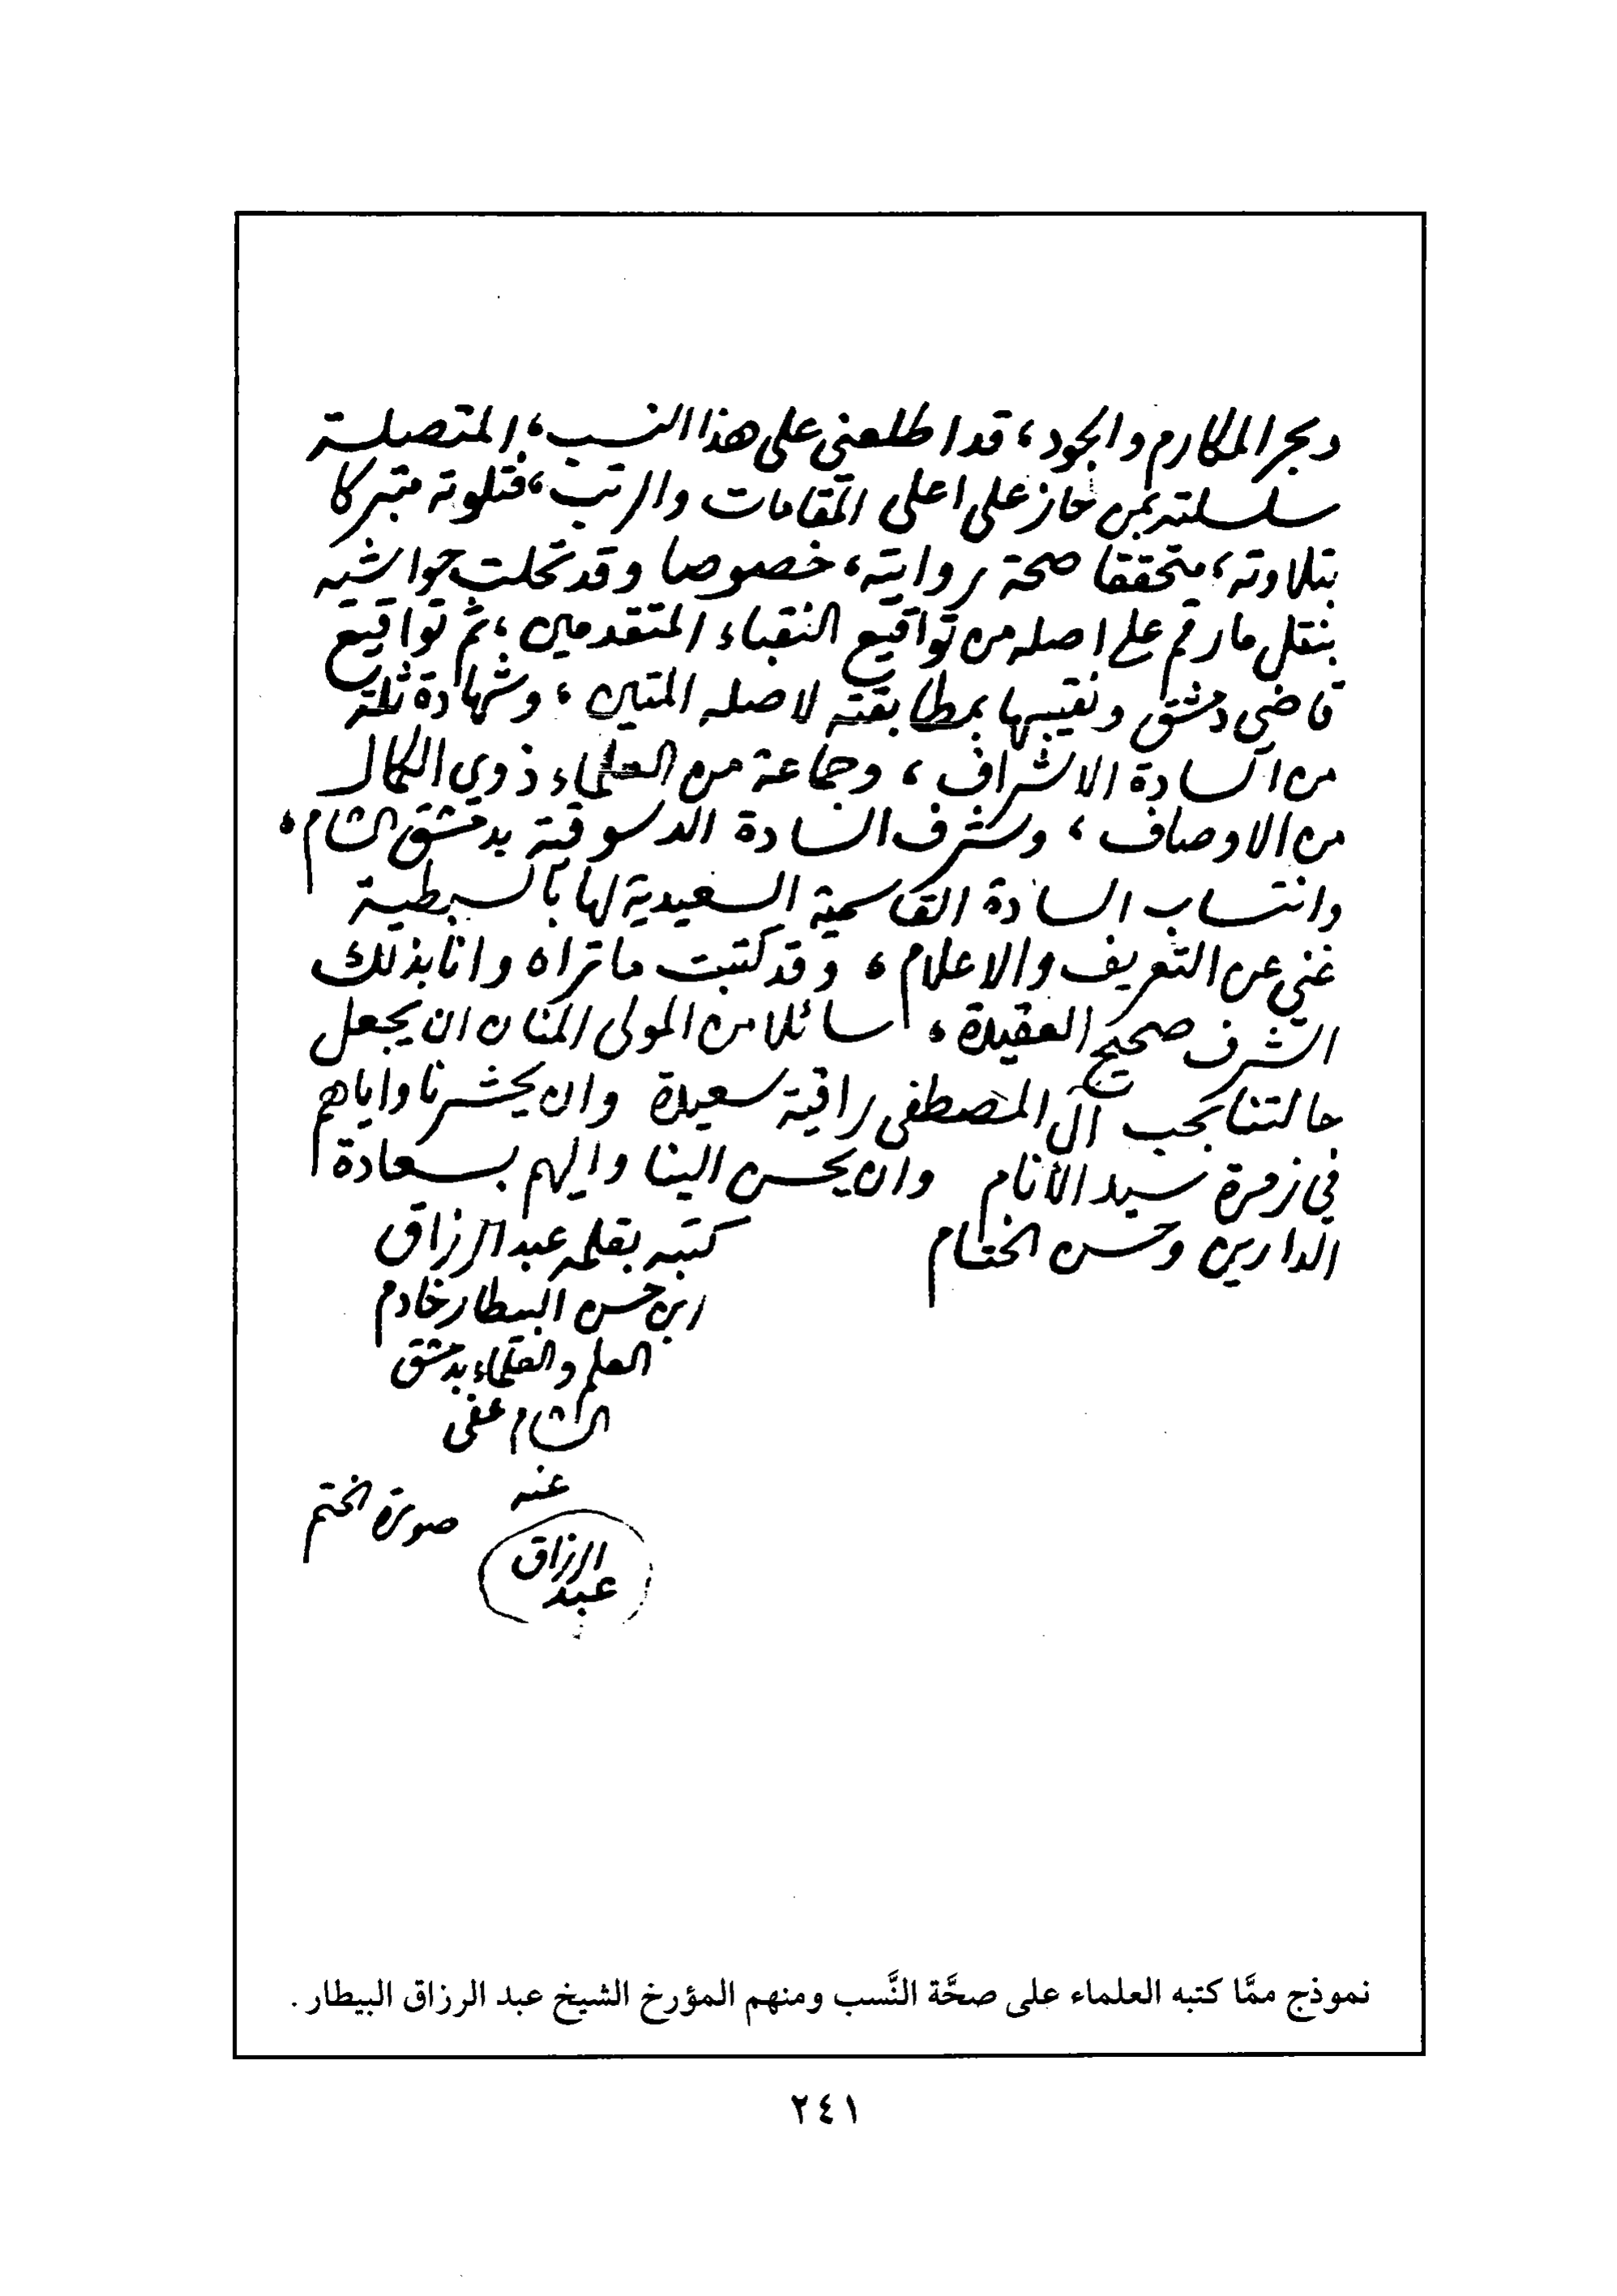 وبحر المكارم والجود، قد اطلعني على هذا النسب، المتصلة
سلسلته بمن حاز على اعلى المقامات والرتب، فتلوته متبركا
بتلاوته، متحققا صحة روايته، خصوصا وقد تحلت حواشيه
بنقل ما رقم على اصله من تواقيع النقباء المتقدمين، ثم تواقيع
قاضي دمشق ونقيبها بمطابقته لاصله المتين، وشهادة ثلة
من السادة الاشراف، وجماعة من العلماء ذوي الكمال
من الاوصاف، وشرف السادة الدسوقية بدمشق الشام،
وانتساب السادة القاسمية السعيدية لها بالسبطية
غني عن التعريف والاعلام، وقد كتبت ما تراه وانا بذلك
الشرف صحيح العقيدة، سائلا من المولى المنان ان يجعل
حالتنا بحب آل المصطفى راقية سعيدة وان يحشرنا واياهم
في زمرة سيد الأنام وان يحسن الينا واليهم بسعادة
الدارين وحسن الختام
كتبه بقلمه عبد الرزاق
ابن حسن البيطار خادم
العلم والعلماء بدمشق
الشام عفي
عنه
صورة الختم
عبد الرزاق
نموذج ممَّا كتبه العلماء على صحَّة النَّسب ومنهم المؤرخ الشيخ عبد الرزاق البيطار .
٢٤١